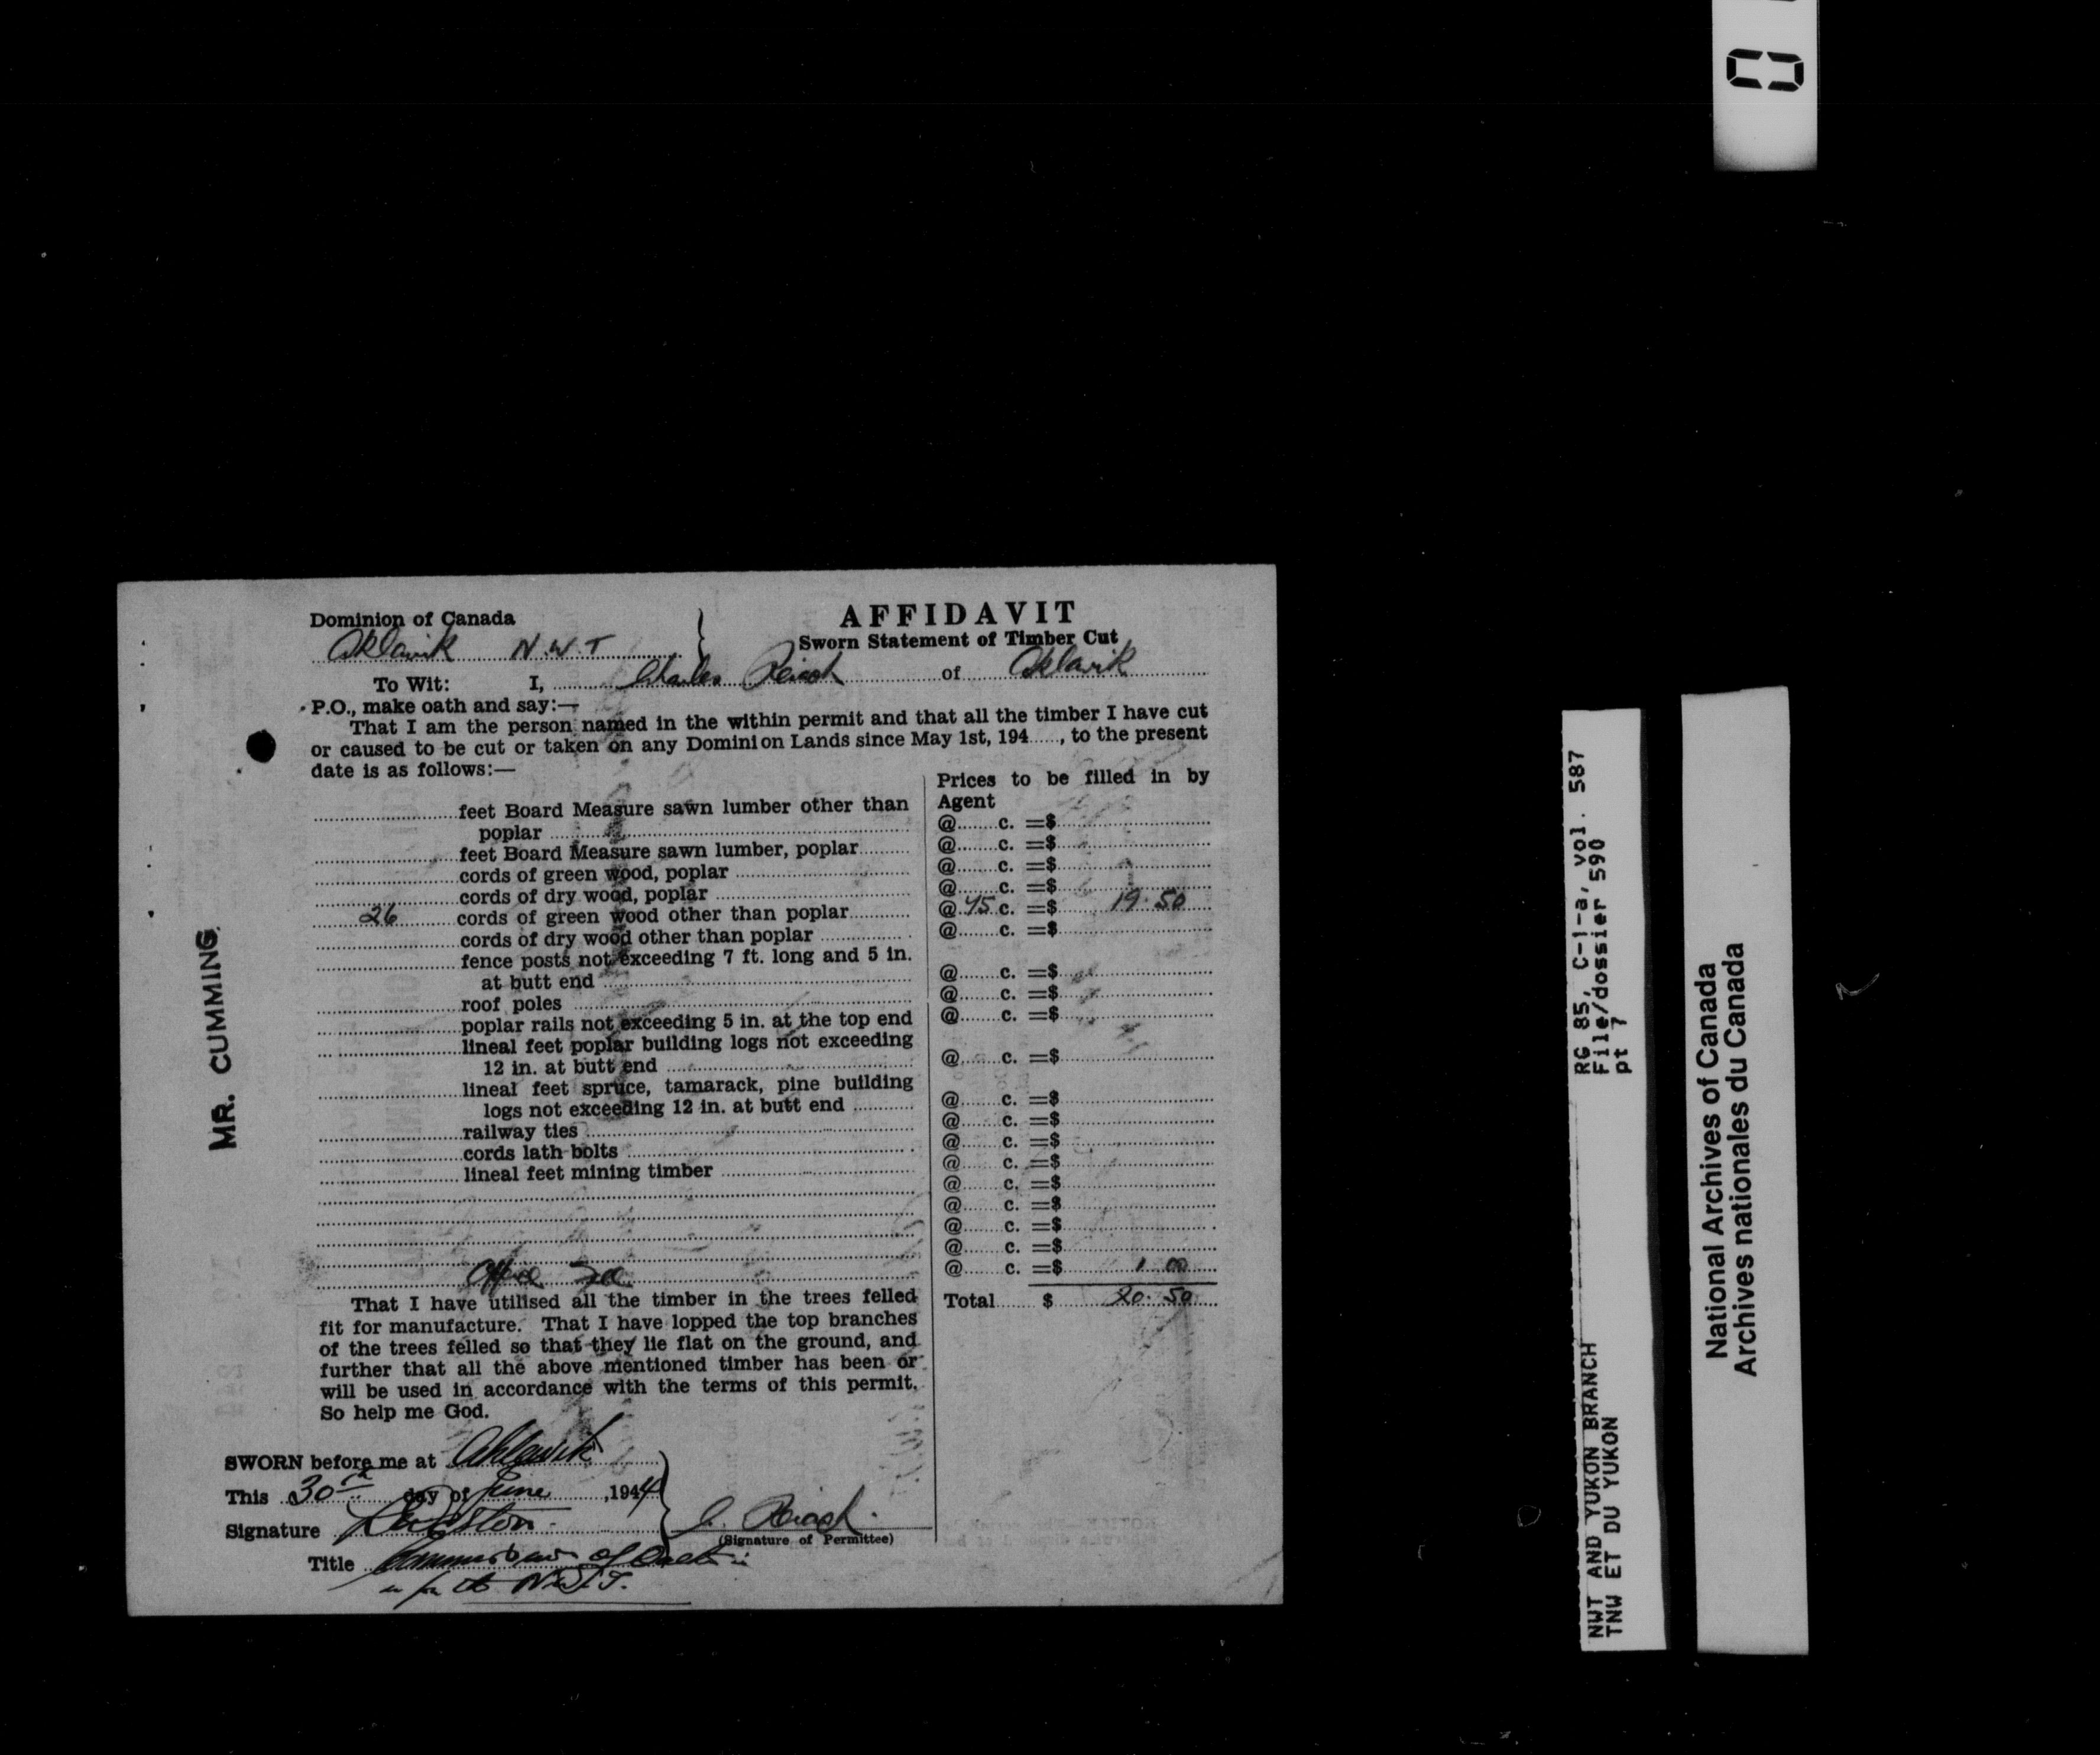 Dominion of Canada
Aklavik N.W.T
AFFIDAVIT
Sworn Statement of Timber Cut
To Wit: I, Charles of Aklavik
P.O., make oath and say:—
That I am the person named in the within permit and that all the timber I have cut
or caused to be cut or taken on any Dominion Lands since May 1st, 194......, to the present
date is as follows:—
Prices to be filled in by
Agent
feet Board Measure sawn lumber other than
poplar @ c. =$
@ c. =$
feet Board Measure sawn lumber, poplar @ c. =$
cords of green wood, poplar
cords of dry wood, poplar @ c. =$
26 cords of green wood other than poplar @ 75 c. =$ 19.50
cords of dry wood other than poplar @ c. =$
fence posts not exceeding 7 ft. long and 5 in.
at butt end @ c. =$
roof poles @ c. =$
poplar rails not exceeding 5 in. at the top end @ c. =$
lineal feet poplar building logs not exceeding
12 in. at butt end @ c. =$
lineal feet spruce, tamarack, pine building
logs not exceeding 12 in. at butt end @ c. =$
railway ties @ c. =$
cords lath bolts @ c. =$
lineal feet mining timber @ c. =$
@ c. =$
@ c. =$
@ c. =$
@ c. =$
Office Fee @ c. =$ 1.00
Total $ 20.50
That I have utilised all the timber in the trees felled
fit for manufacture. That I have lopped the top branches
of the trees felled so that they lie flat on the ground, and
further that all the above mentioned timber has been or
will be used in accordance with the terms of this permit.
So help me God.
SWORN before me at Aklavik
This 30th day of June, 1944
Signature
(Signature of Permittee)
Title Commissioner of Oaths
in for the N.W.T.
MR. CUMMING
RG 85, C-1-a, vol. 587
File/dossier 590
pt 7
NWT AND YUKON BRANCH
TNW ET DU YUKON
National Archives of Canada
Archives nationales du Canada